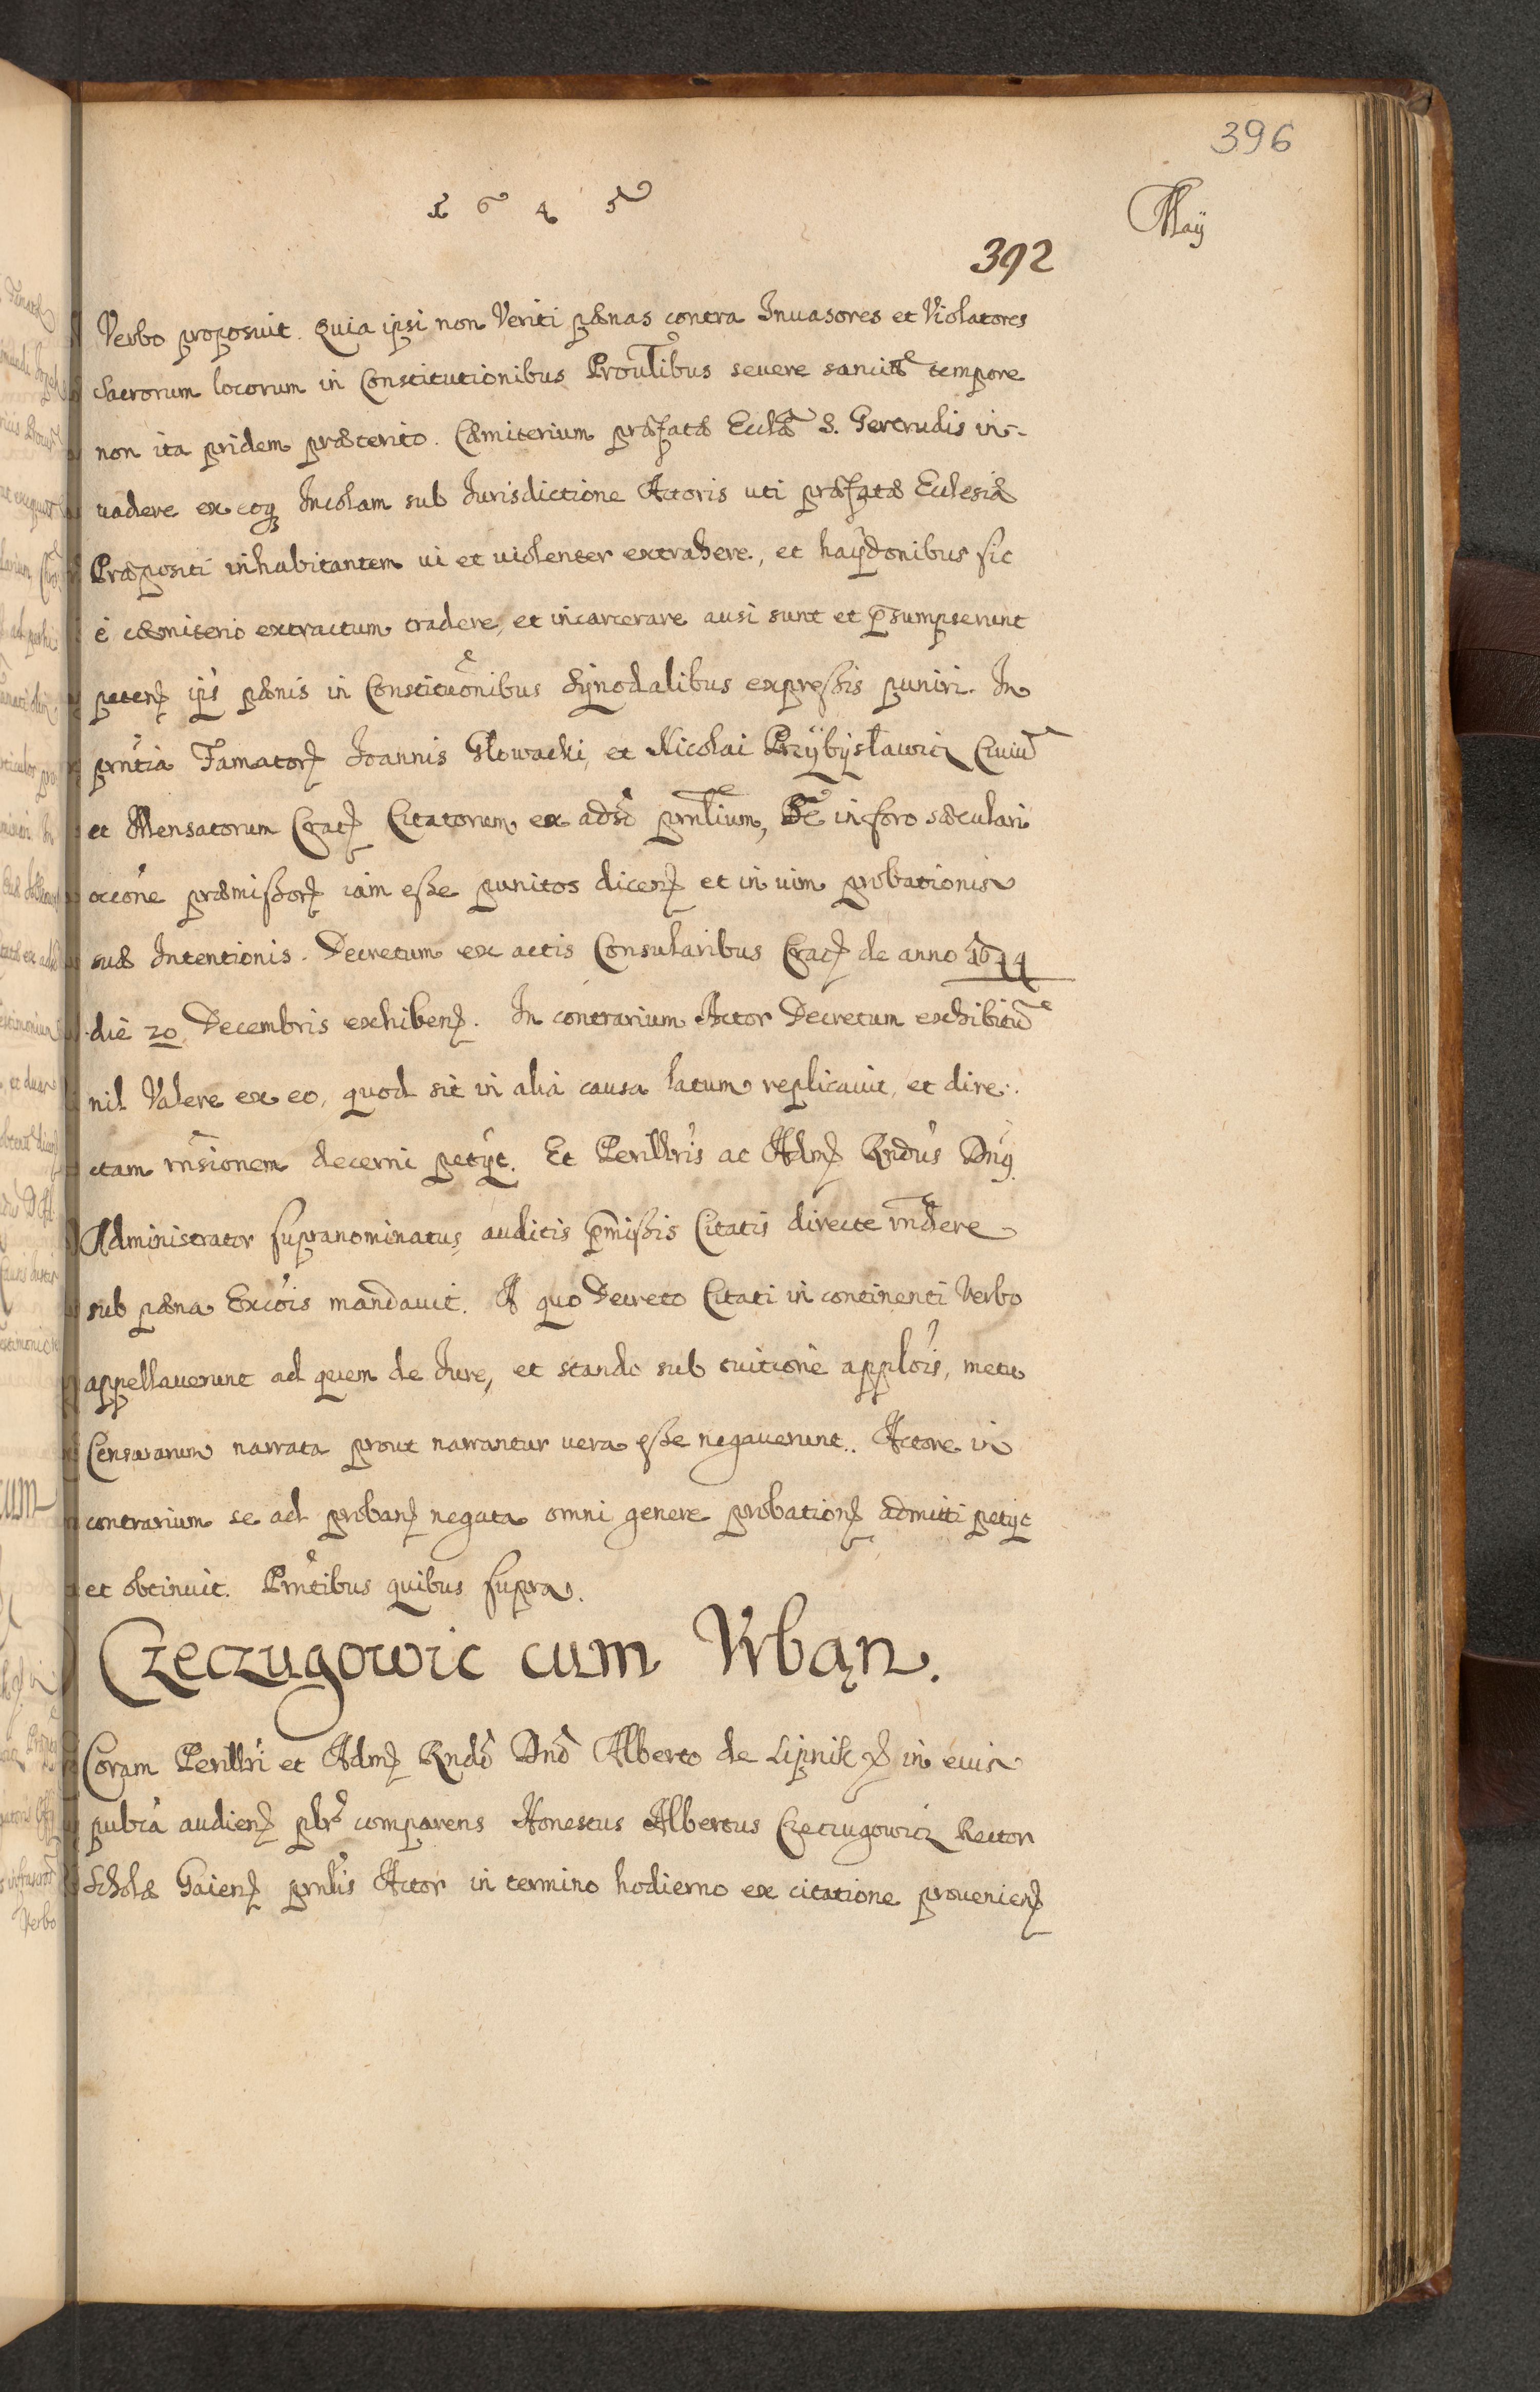 396
1 6 4 5
Maÿ
392
Verbo proposuit. Quia ipsi non Veriti pænas contra Inuasores et Violatores
Sacrorum locorum in Constitutionibus Prouľibus seuere sancitas tempore
non ita pridem præterito. Cæmiterium præfatæ Ecclæ S. Gertrudis in-
uadere ex eoq3 Incolam sub Iurisdictione Actoris uti præfatæ Ecclesiæ
Præpositi inhabitantem ui et uiolenter extrahere, et haydonibus sic
è cæmiterio extractum tradere, et incarcerare ausi sunt et p̃sumpserunt
peten3 ip̃s pænis in Constituõnibus Sÿnodalibus expressis puniri. In
prñtia Famator3 Joannis Głowacki, et Nicolai Przÿbÿsławicz Ciuiũ
et Mensatorum Crac3 Citatorum ex adsõ prñtium, Se in foro sæculari
occõne præmissor3 iam esse punitos dicen3 et in uim probationis
suæ Intentionis. Decretum ex actis Consularibus Crac3 de anno 1644
die 20 Decembris exhiben3. In contrarium Actor Decretum exhibitũ
nil Valere ex eo, quod sit in alia causa latum replicauit, et dire-
ctam rñsionem decerni petÿt. Et Perillris ac Adm3 Rndus Dñus
Administrator supranominatus, auditis p̃missis Citatis directe rñdere
sub pæna Excõis mandauit. A quo Decreto Citati in continenti Verbo
appellauerunt ad quem de Iure, et stando sub tuitione applõis, metu
Censurarum narrata prout narrantur uera esse negauerunt. Actore in
contrarium se ad proban3 negata omni genere probation3 admitti petÿt
et obtinuit. Prñtibus quibus supra.
Czeczugowic cum Vrbąn.
Coram Perillri et Adm3 Rndo Dño Alberto de Lipnik &c in eius
publca audien3 pbr̃ comparens Honestus Albertus Czeczugowicz Rector
Scholæ Gaien3 prñlis Actor in termino hodierno ex citatione prouenien3